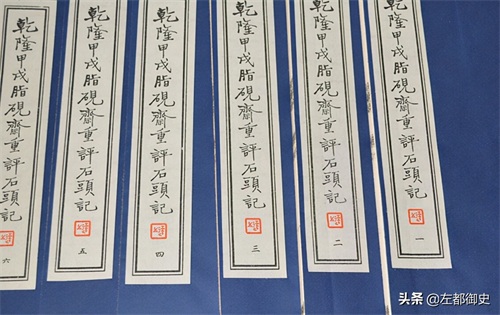 乾隆甲戌脂硯齋重評石頭記
一
乾隆甲戌脂硯齋重評石頭記
二
乾隆甲戌脂硯齋重評石頭記
三
乾隆甲戌脂硯齋重評石頭記
四
乾隆甲戌脂硯齋重評石頭記
五
乾隆甲戌脂硯齋重評石頭記
六
头条 @左都御史